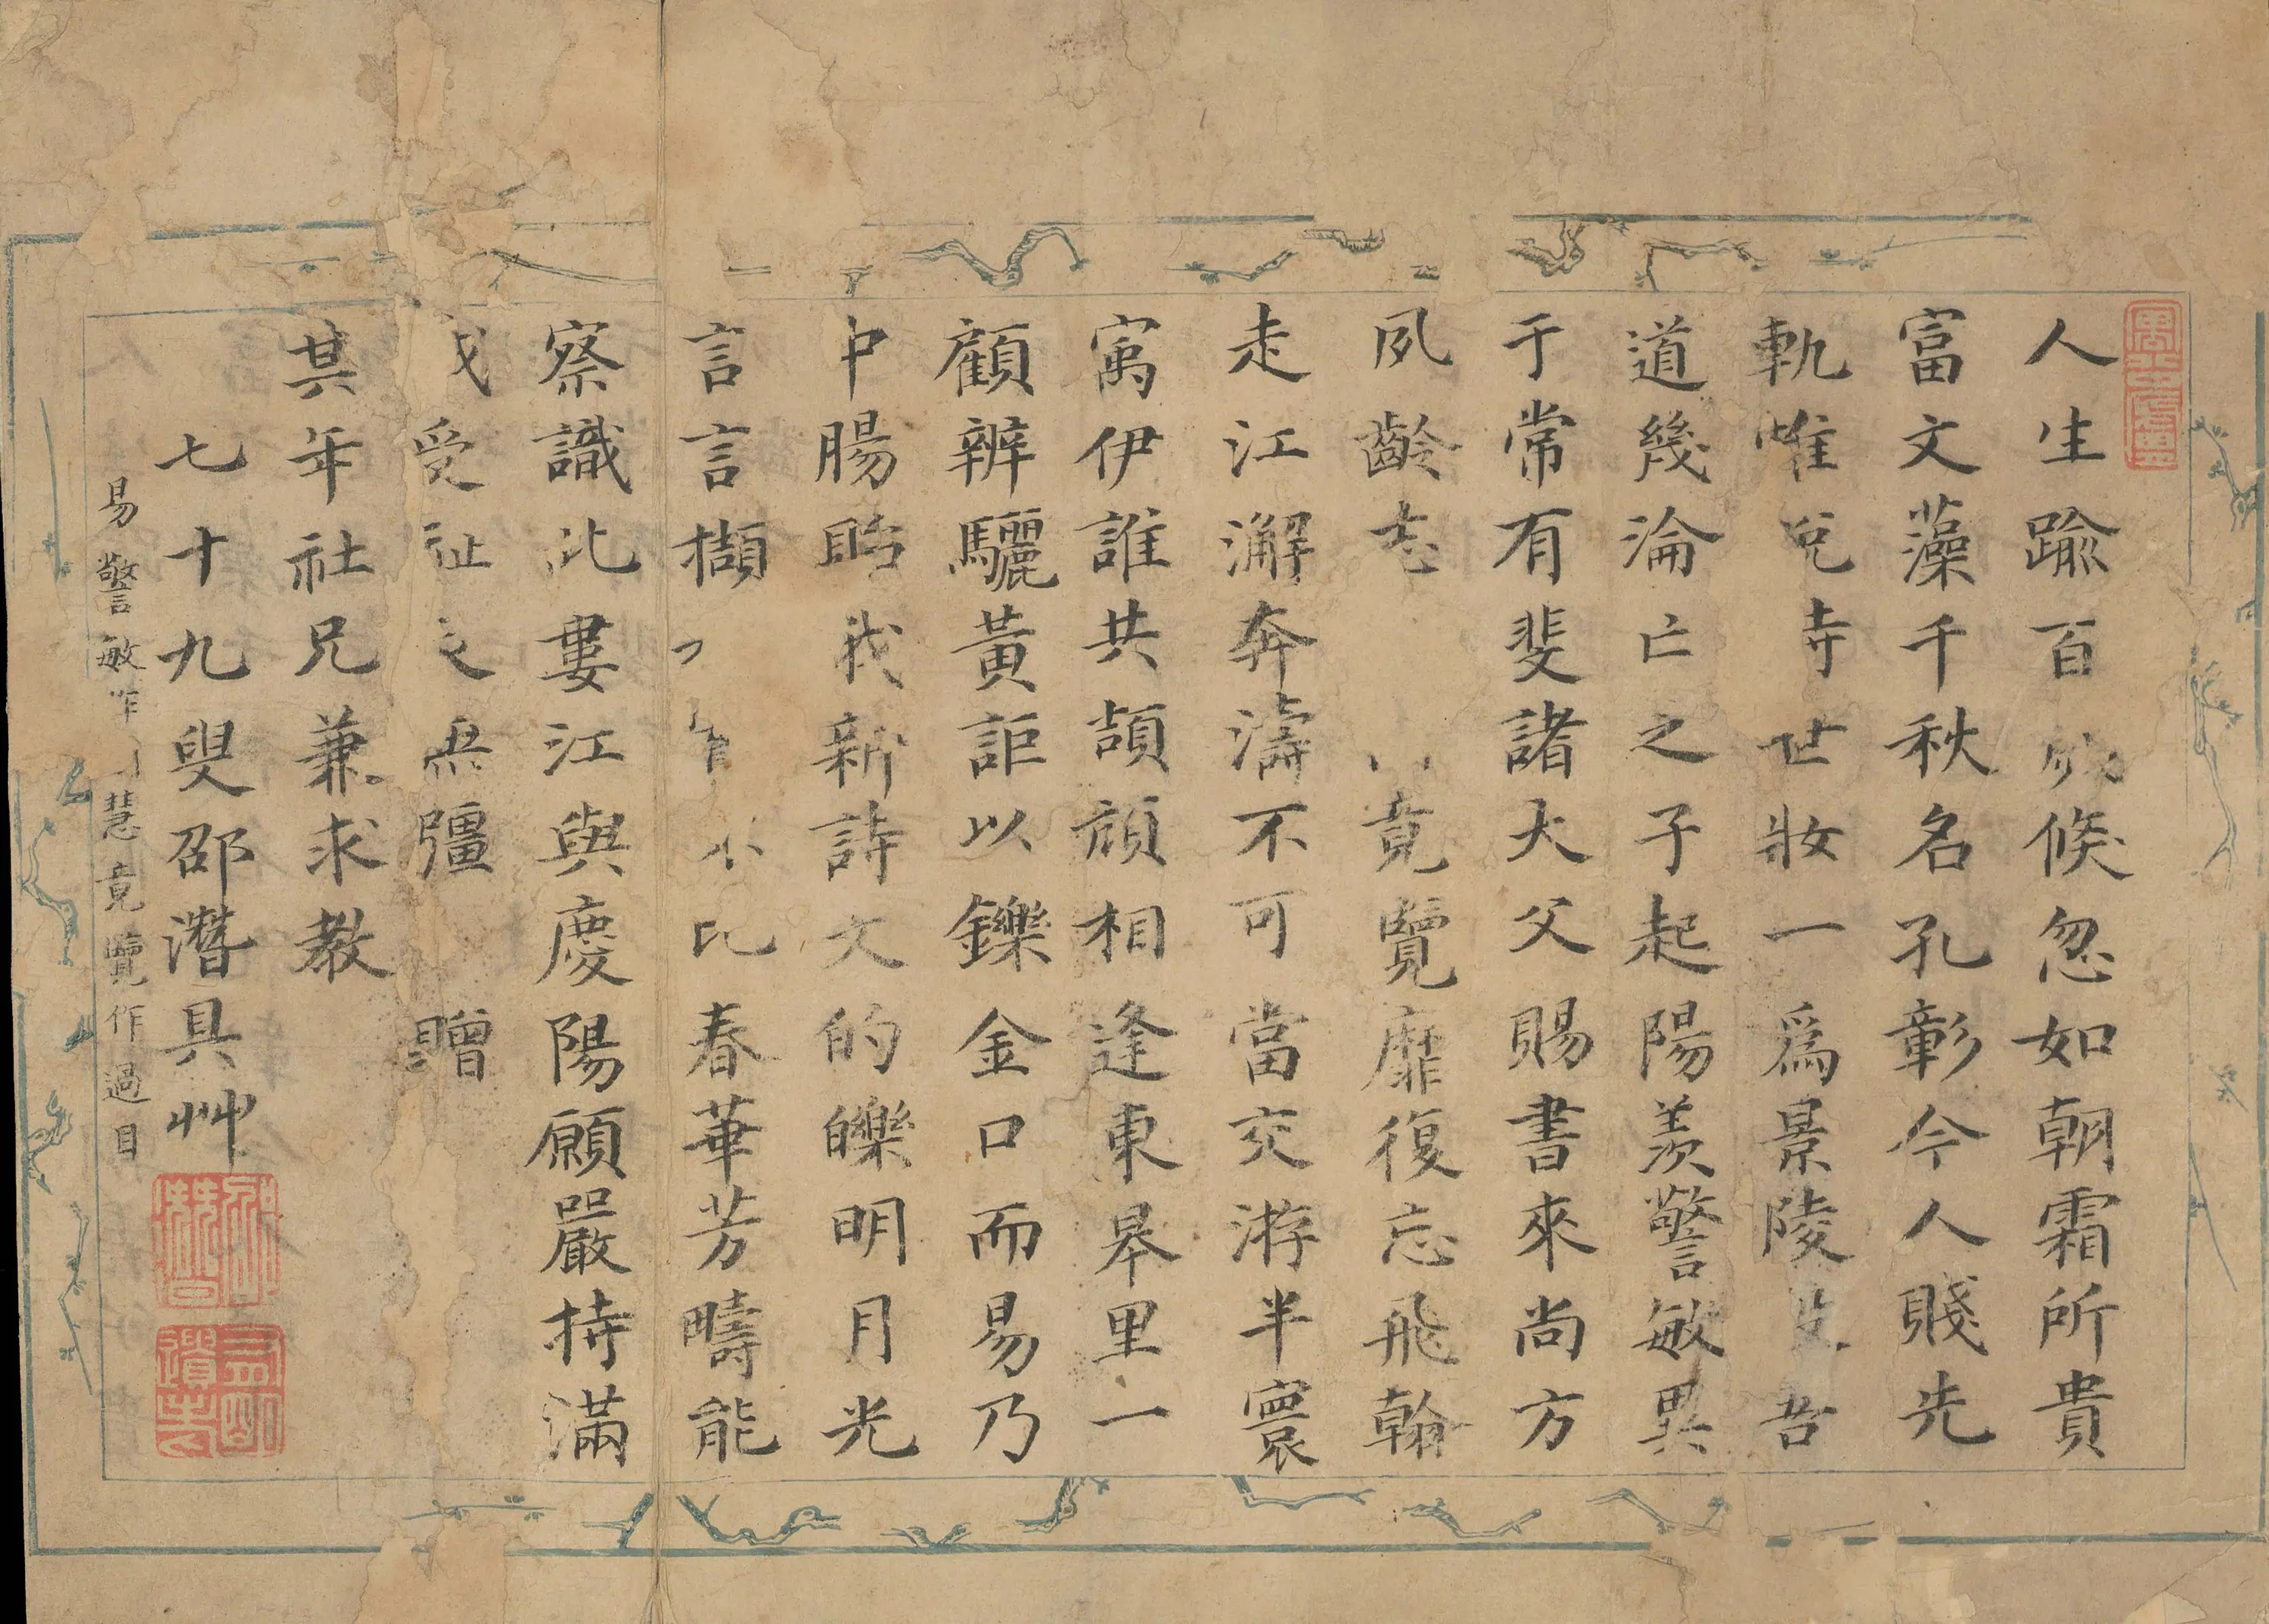 人生踰百倐忽如朝霜所貴
富文藻千秋名孔彰今人賤先
軌唯兌寺世妝一爲景陵吾
道幾淪亡之子起陽羡警敏異
于常有斐諸大父賜書來尚方
夙齡志竟覽靡復忘飛翰
走江澥奔濤不可當交游半寰
寓伊誰共頡頏相逢東皋里一
顧辨驪黃詎以鑠金口而易乃
中腸貽我新詩文的皪明月光
言言擷比春華芳疇能
察識此婁江與慶陽願嚴持滿
戒受祉之無彊 贈
其年社兄兼求教
七十九叟邵潛具艸
易警敏作慧竟覽作過目